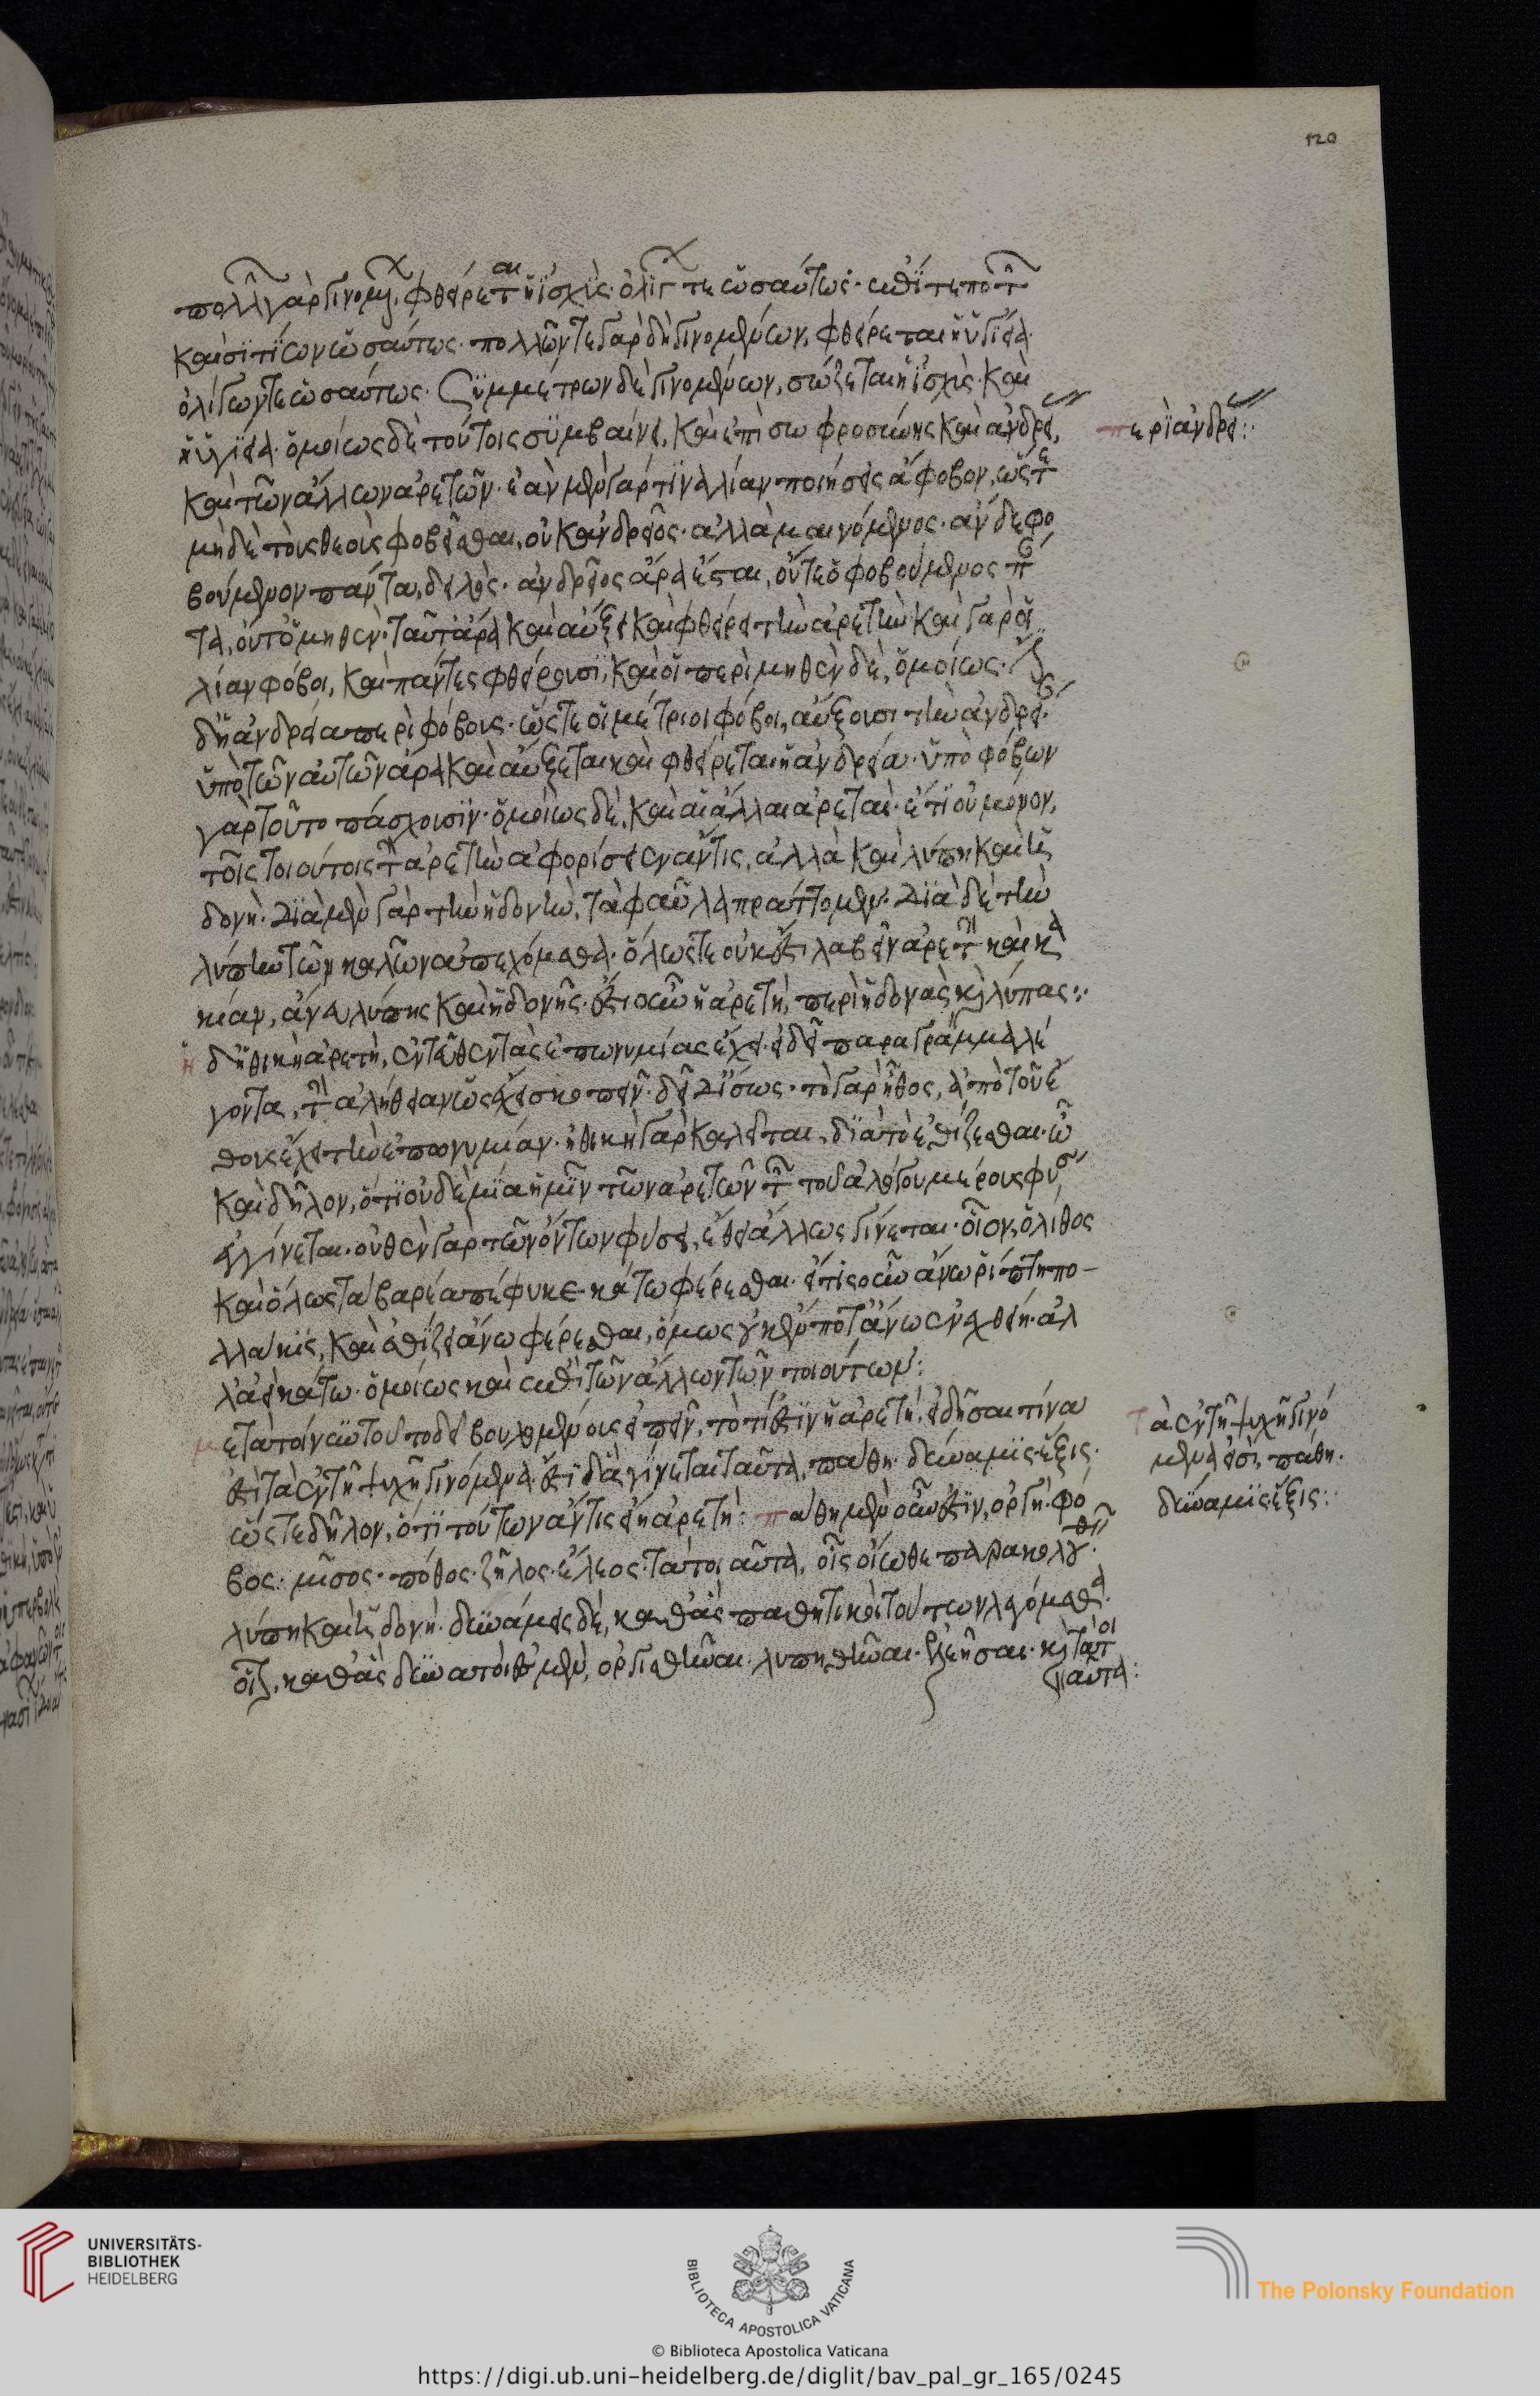 120
πολλῶν γὰρ γινομένων, φθείρεται ἡ ἰσχύς· ὀλίγων τε ὡσαύτως· ἐπί τε ποτῶν
καὶ σιτίων ὡσαύτως· πολλῶν τε γὰρ δὴ γινομένων, φθείρεται ἡ ὑγίεια·
ὀλίγων τε ὡσαύτως· Συμμέτρων δὲ γινομένων, σώζεται ἡ ἰσχὺς καὶ
ἡ ὑγίεια· ὁμοίως δὲ τούτοις συμβαίνει, καὶ ἐπὶ σωφροσύνης καὶ ἀνδρείας,
περὶ ἀνδρείας:
καὶ τῶν ἄλλων ἀρετῶν· ἐὰν μὲν γάρ τινα λίαν ποιήσεις ἄφοβον, ὥστε
μηδὲ τοὺς θεοὺς φοβεῖσθαι, οὐκ ἀνδρεῖος· ἀλλὰ μαινόμενος· ἂν δὲ φο
βούμενον πάντα, δειλός· ἀνδρεῖος ἄρα ἔσται, οὔτε ὁ φοβούμενος πάν
τα, οὔτ' ὁ μηθέν· ταῦτ' ἄρα καὶ αὔξει καὶ φθείρει τὴν ἀρετὴν καὶ γὰρ οἱ
λίαν φόβοι, καὶ πάντες φθείρουσι, καὶ οἱ περὶ μηθὲν δὲ, ὁμοίως· ἔστι
δ' ἡ ἀνδρεία περὶ φόβους· ὥστε οἱ μέτριοι φόβοι, αὔξουσι τὴν ἀνδρείαν·
ὑπὸ τῶν αὐτῶν ἄρα καὶ αὔξεται καὶ φθείρεται ἡ ἀνδρεία· ὑπὸ φόβων
γὰρ τοῦτο πάσχουσιν· ὁμοίως δὲ, καὶ αἱ ἄλλαι ἀρεταί· ἔτι οὐ μόνον,
τοῖς τοιούτοις τὴν ἀρετὴν ἀφορίσειεν ἄν τις, ἀλλὰ καὶ λύπη καὶ ἡ
δονῇ· διὰ μὲν γὰρ τὴν ἡδονὴν, τὰ φαῦλα πράττομεν· διὰ δὲ τὴν
λύπην τῶν καλῶν ἀπεχόμεθα· ὅλως τε οὐκ ἔστι λαβεῖν ἀρετὴν καὶ κα
κίαν, ἄνευ λύπης καὶ ἡδονῆς· ἔστιν οὖν ἡ ἀρετὴ, περὶ ἡδονὰς καὶ λύπας:
ἡ δ' ἠθικὴ ἀρετὴ, ἐντεῦθεν τὰς ἐπωνυμίας ἔχει· εἰ δεῖ παρὰ γράμμα λέ
γοντα, τὴν ἀλήθειαν ὡς ἔχει σκοπεῖν· δεῖ δ' ἴσως· τὸ γὰρ ἦθος, ἀπὸ τοῦ ἔ
θους ἔχει τὴν ἐπωνυμίαν· ἠθικὴ γὰρ καλεῖται, διὰ τὸ ἐθίζεσθαι· ᾧ
καὶ δῆλον, ὅτι οὐδὲ μία ἡμῖν τῶν ἀρετῶν τῶν τοῦ ἀλόγου μέρους φύσει
ἐγγίνεται· οὐθὲν γὰρ τῶν ὄντων φύσει, ἔθει ἄλλως γίνεται· οἷον, ὁ λίθος
καὶ ὅλως τὰ βαρέα πέφυκε κάτω φέρεσθαι· εἴ τις οὖν ἄνω ῥίπτῃ πο-
λλάκις, καὶ ἐθίζει ἄνω φέρεσθαι, ὅμως οὐκ μέν ποτ' ἄνω ἐνεχθείη· ἀλ
λ' ἀεὶ κάτω· ὁμοίως καὶ ἐπὶ τῶν ἄλλων τῶν τοιούτων:
μετὰ τοίνυν τοῦτο δεῖ βουλομένους εἰπεῖν, τὸ τί ἐστὶν ἡ ἀρετὴ, εἰδῆσαι τίνα
ἐστὶ τὰ ἐν τῇ ψυχῇ γινόμενα· ἔστι δ' ἃ γίνεται ταῦτα, πάθη· δυνάμεις· ἕξεις·
ὥστε δῆλον, ὅτι τούτων ἄν τις εἴη ἀρετή: πάθη μὲν οὖν ἐστὶν, ὀργή· φό
βος· μῖσος· πόθος· ζῆλος· ἔλεος· τὰ τοιαῦτα, οἷς εἴωθε παρακολουθεῖν
λύπη καὶ ἡδονή· δυνάμεις δὲ, καθ' ἃς παθητικοὶ τούτων λεγόμεθα·
οἷον, καθ' ἃς δυνατοί ἐσμεν, ὀργισθῆναι· λυπηθῆναι· ἐλεῆσαι· καὶ τὰ τοι
αῦτα:
τὰ ἐν τῇ ψυχῇ γινό
μενα εἰσὶ, πάθη·
δυνάμεις ἕξεις:
UNIVERSITÄTS-
BIBLIOTHEK
HEIDELBERG
BIBLIOTECA APOSTOLICA VATICANA
The Polonsky Foundation
© Biblioteca Apostolica Vaticana
https://digi.ub.uni-heidelberg.de/diglit/bav_pal_gr_165/0245